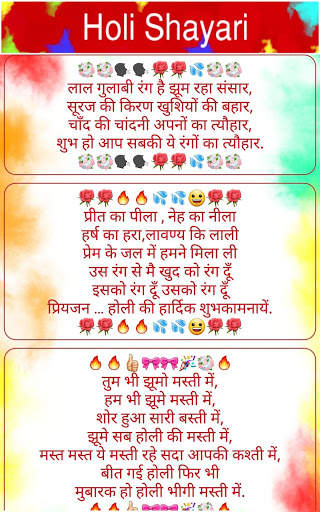 Holi Shayari
लाल गुलाबी रंग है झूम रहा संसार,
सूरज की किरण खुशियों की बहार,
चाँद की चांदनी अपनों का त्यौहार,
शुभ हो आप सबकी ये रंगों का त्यौहार.
प्रीत का पीला , नेह का नीला
हर्ष का हरा,लावण्य कि लाली
प्रेम के जल में हमने मिला ली
उस रंग से मै खुद को रंग दूँ
इसको रंग दूँ उसको रंग दूँ
प्रियजन ... होली की हार्दिक शुभकामनायें.
तुम भी झूमो मस्ती में,
हम भी झूमे मस्ती में,
शोर हुआ सारी बस्ती में,
झूमे सब होली की मस्ती में,
मस्त मस्त ये मस्ती रहे सदा आपकी कश्ती में,
बीत गई होली फिर भी
मुबारक हो होली भीगी मस्ती में.